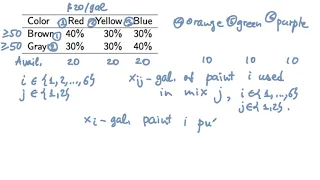 $20/gal
Color ① Red ② Yellow ③ Blue ④ orange ⑤ green ⑥ purple
≥50 Brown ① 40% 30% 30%
≥50 Gray ② 30% 30% 40%
Avail. 20 20 20 10 10 10
i ∈ {1,2,...,6} xij-gal. of paint i used
j ∈ {1,2} in mix j, i∈{1,...,6}
j∈{1,2}.
xi-gal. paint i pu